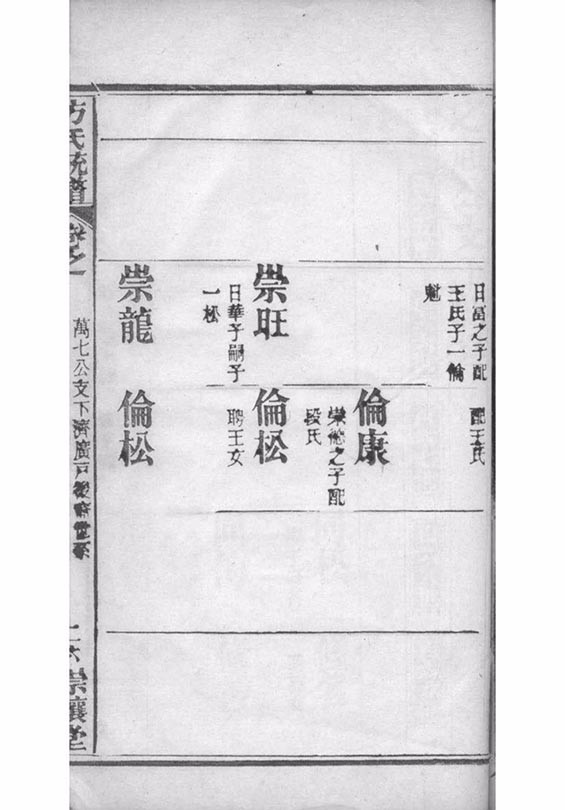 日富之子配
王氏子一倫
魁
配王氏
倫康
崇德之子配
段氏
崇旺
日華子嗣子
一松
倫松
聘王女
崇龍
倫松
方氏統譜
卷之一
萬七公支下濟廣戶
崇讓堂